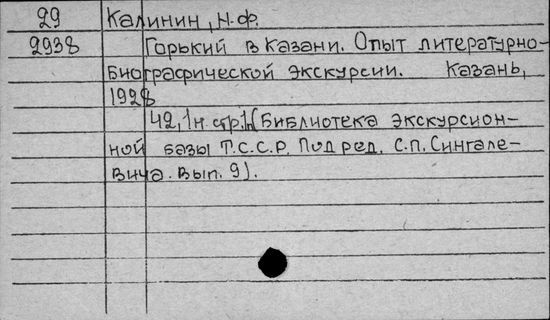 29 Калинин, Н.Ф.
2938 Горький в Казани. Опыт литературно-
биографической экскурсии. Казань,
1928
42, 1 н. стр. (Библиотека экскурсион-
ной базы Т.С.С.Р. Под ред. С.П. Сингале-
вича. Вып. 9).